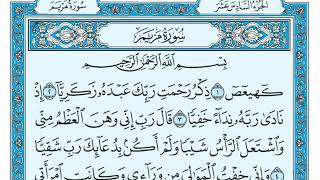 سُورَةُ مَرْيَمَ
الجُزْءُ السَّادِسَ عَشَرَ
سُورَةُ مَرْيَمَ
بِسْمِ اللَّهِ الرَّحْمَٰنِ الرَّحِيمِ
كٓهيعٓصٓ ١ ذِكْرُ رَحْمَتِ رَبِّكَ عَبْدَهُۥ زَكَرِيَّآ ٢ إِذْ
نَادَىٰ رَبَّهُۥ نِدَآءً خَفِيًّا ٣ قَالَ رَبِّ إِنِّى وَهَنَ ٱلْعَظْمُ مِنِّى
وَٱشْتَعَلَ ٱلرَّأْسُ شَيْبًا وَلَمْ أَكُنۢ بِدُعَآئِكَ رَبِّ شَقِيًّا
٤ وَإِنِّى خِفْتُ ٱلْمَوَٰلِىَ مِن وَرَآءِى وَكَانَتِ ٱمْرَأَتِى